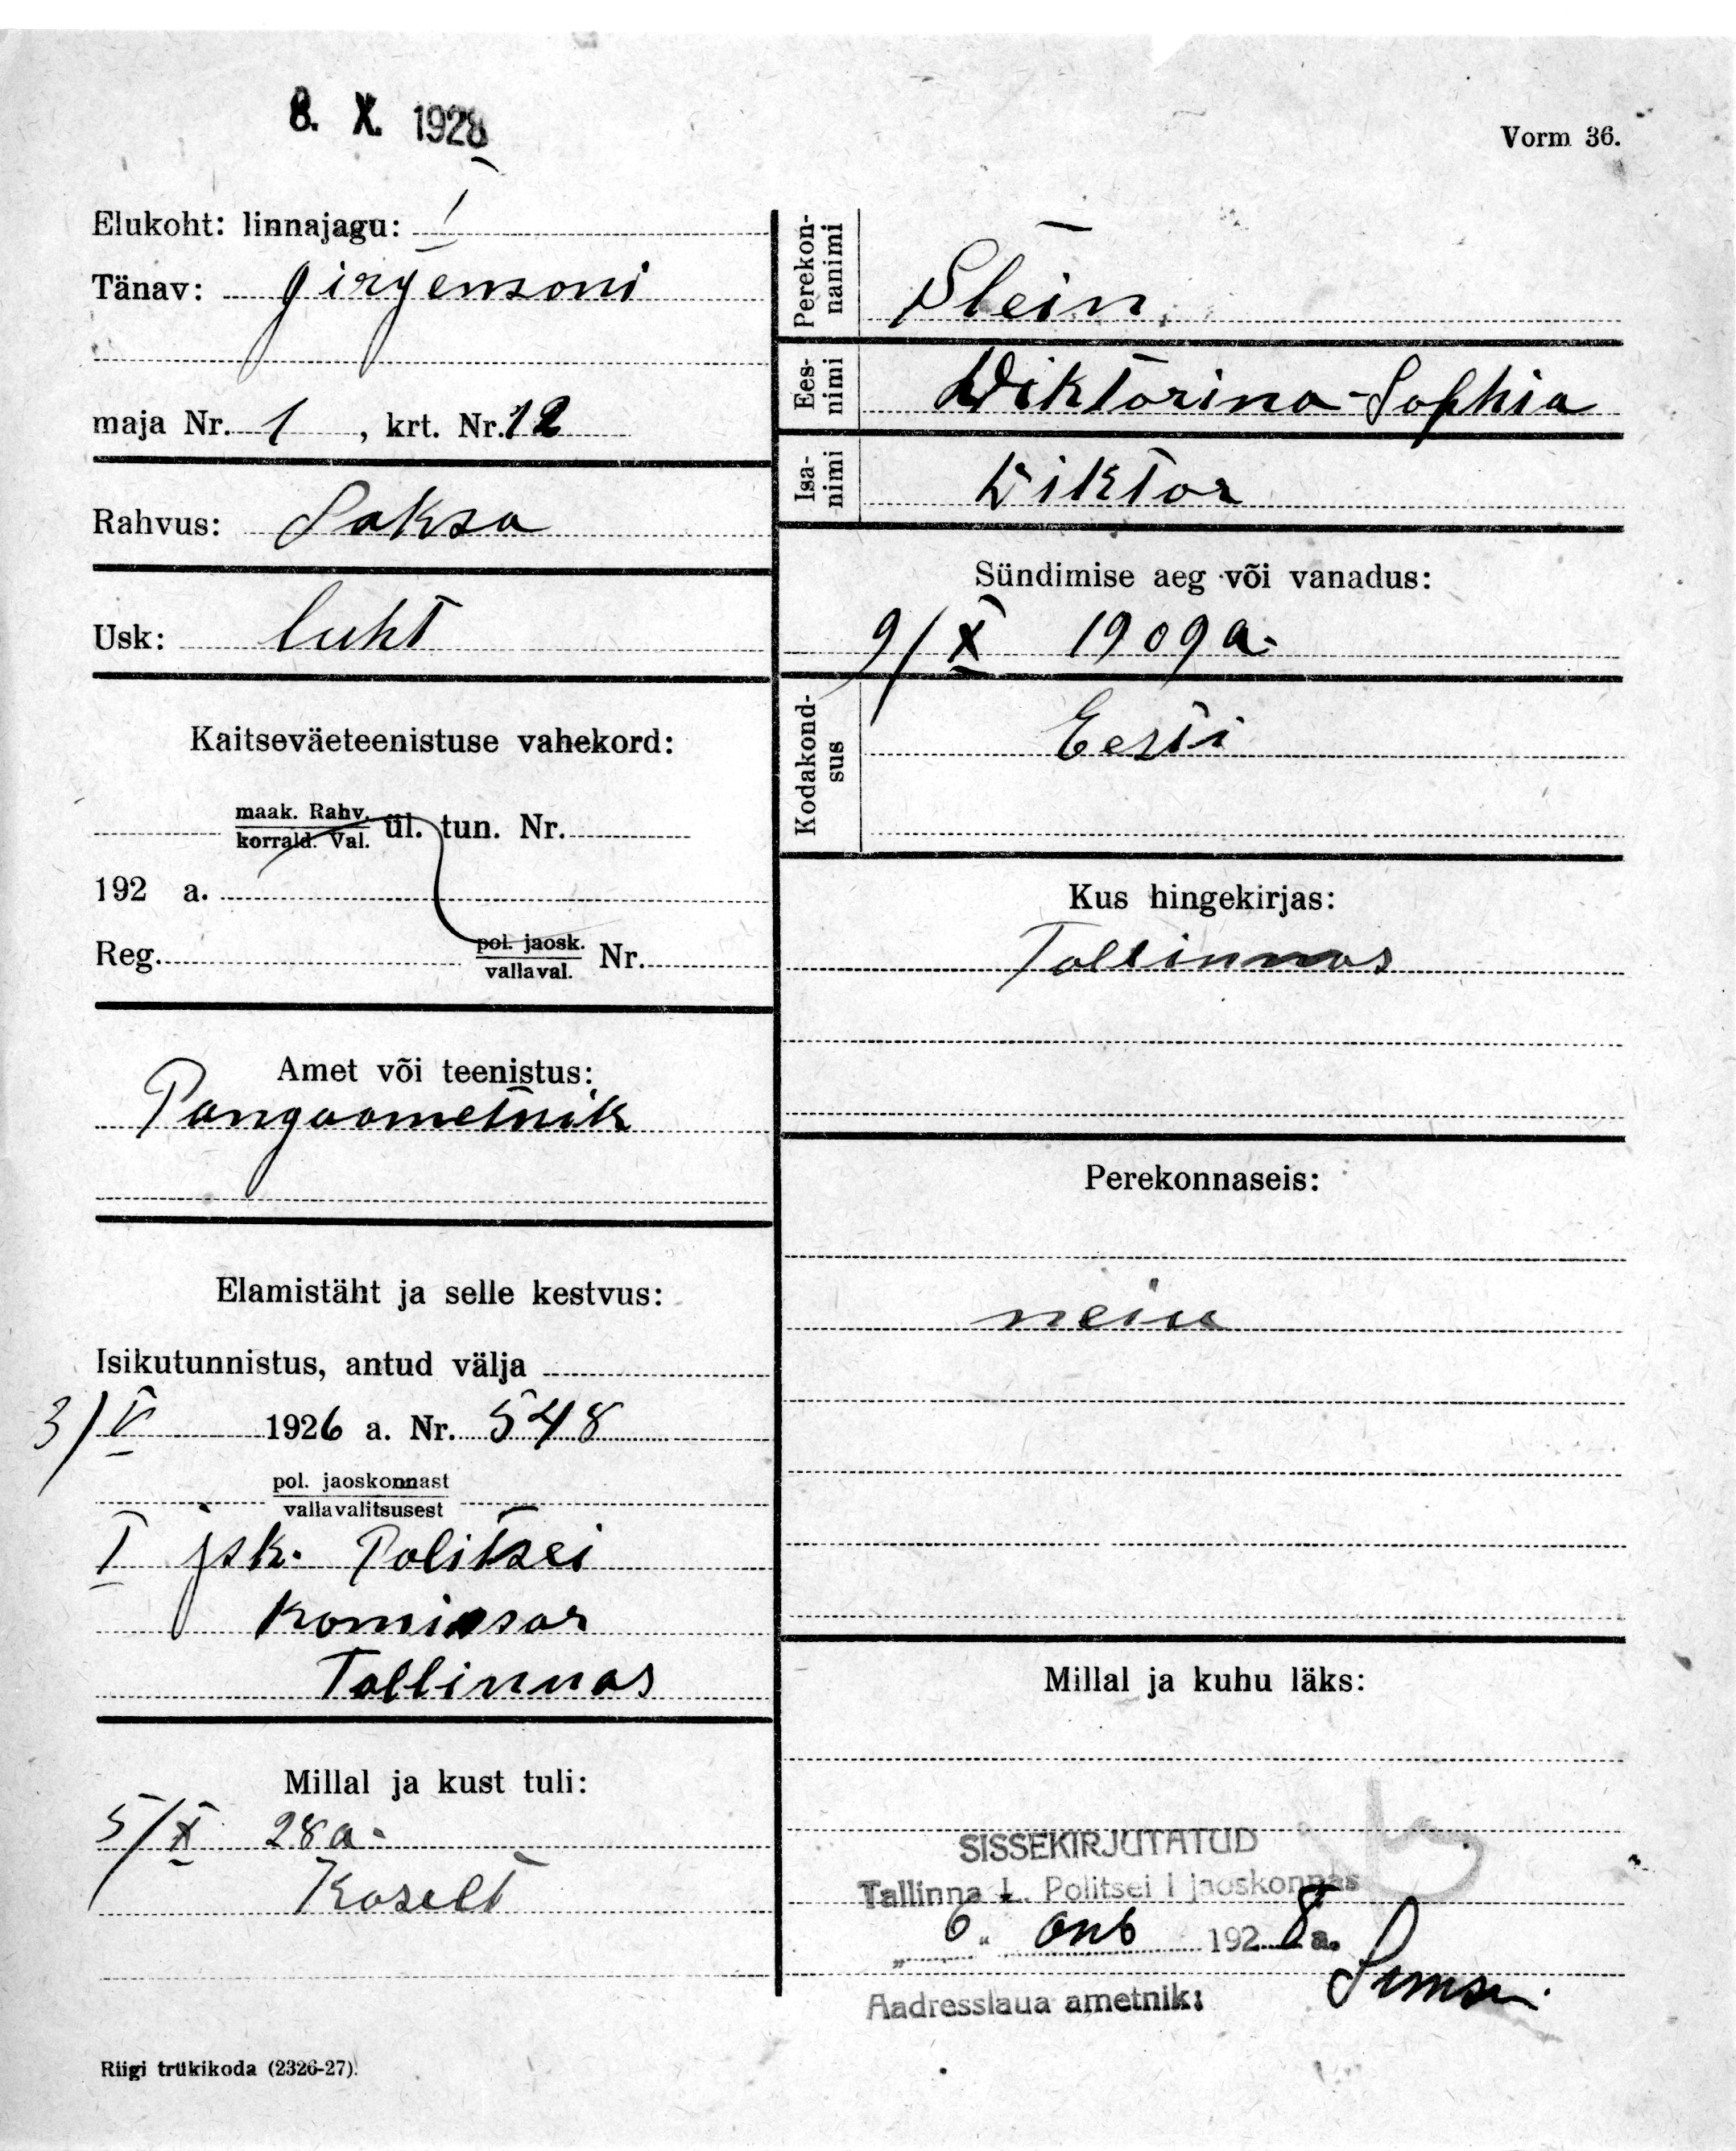 8. X. 1928
Vorm 36.
Elukoht: linnajagu: I
Tänav: Girgensoni
maja Nr. 1, krt. Nr. 12
Rahvus: Saksa
Usk: luht
Kaitseväeteenistuse vahekord:
maak. Rahv.
korrald. Val. ül. tun. Nr.
192 a.
Reg. pol. jaosk.
vallaval. Nr.
Amet või teenistus:
Pangaametnik
Elamistäht ja selle kestvus:
Isikutunnistus, antud välja
3/V 1926 a. Nr. 548
pol. jaoskonnast
vallavalitsusest
I jsk. Politsei
Komissar
Tallinnas
Millal ja kust tuli:
5/X 28 a.
Koselt
Riigi trükikoda (2326-27).
Perekon-
nanimi
Stein
Ees-
nimi
Wiktorina-Sophia
Isa-
nimi
Wiktor
Sündimise aeg või vanadus:
9/X 1909 a.
Kodakond-
sus
Eesti
Kus hingekirjas:
Tallinnas
Perekonnaseis:
neiu
Millal ja kuhu läks:
SISSEKIRJUTATUD
Tallinna L. Politsei I jaoskonnas
"6" okt 1928 a.
Aadresslaua ametnik: